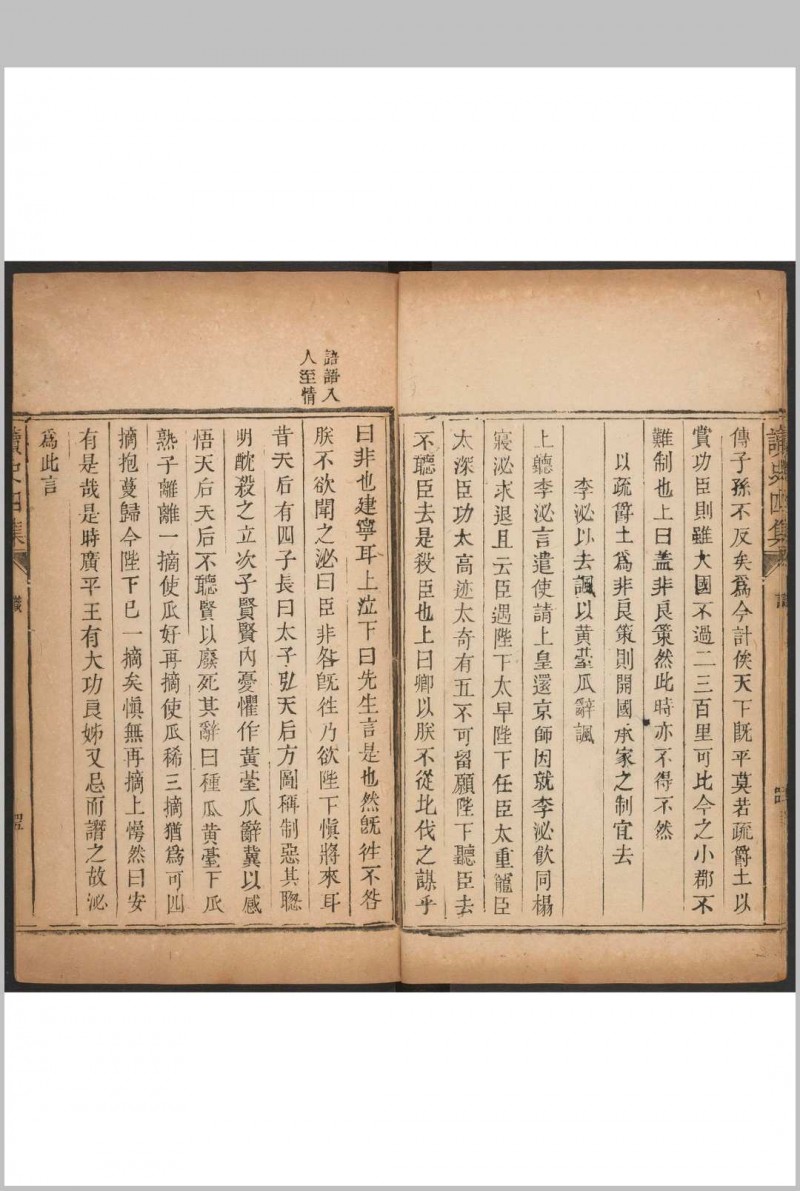 傳子孫不反矣爲今計俟天下既平莫若疏爵土以
賞功臣則雖大國不過二三百里可比今之小郡不
難制也上曰蓋非良策然此時亦不得不然
以疏爵土爲非良策則開國承家之制宜去
李泌以去諷以黄䑓瓜辭諷
上聽李泌言遣使請上皇還京師因就李泌飲同榻
寢泌求退且云臣遇陛下太早陛下任臣太重寵臣
太深臣功太高迹太奇有五不可留願陛下聽臣去
不聽臣去是殺臣也上曰卿以朕不從北伐之謀乎
語語入
人至情
曰非也建寧耳上泣下曰先生言是也然既徃不咎
朕不欲聞之泌曰臣非咎既徃乃欲陛下慎將來耳
昔天后有四子長曰太子弘天后方圖稱制惡其聰
明酖殺之立次子賢賢内憂懼作黄䑓瓜辭冀以感
悟天后天后不聽賢以廢死其辭曰種瓜黄臺下瓜
熟子離離一摘使瓜好再摘使瓜稀三摘猶爲可四
摘抱蔓歸今陛下已一摘矣慎無再摘上愕然曰安
有是哉是時廣平王有大功良娣又忌而譖之故泌
爲此言